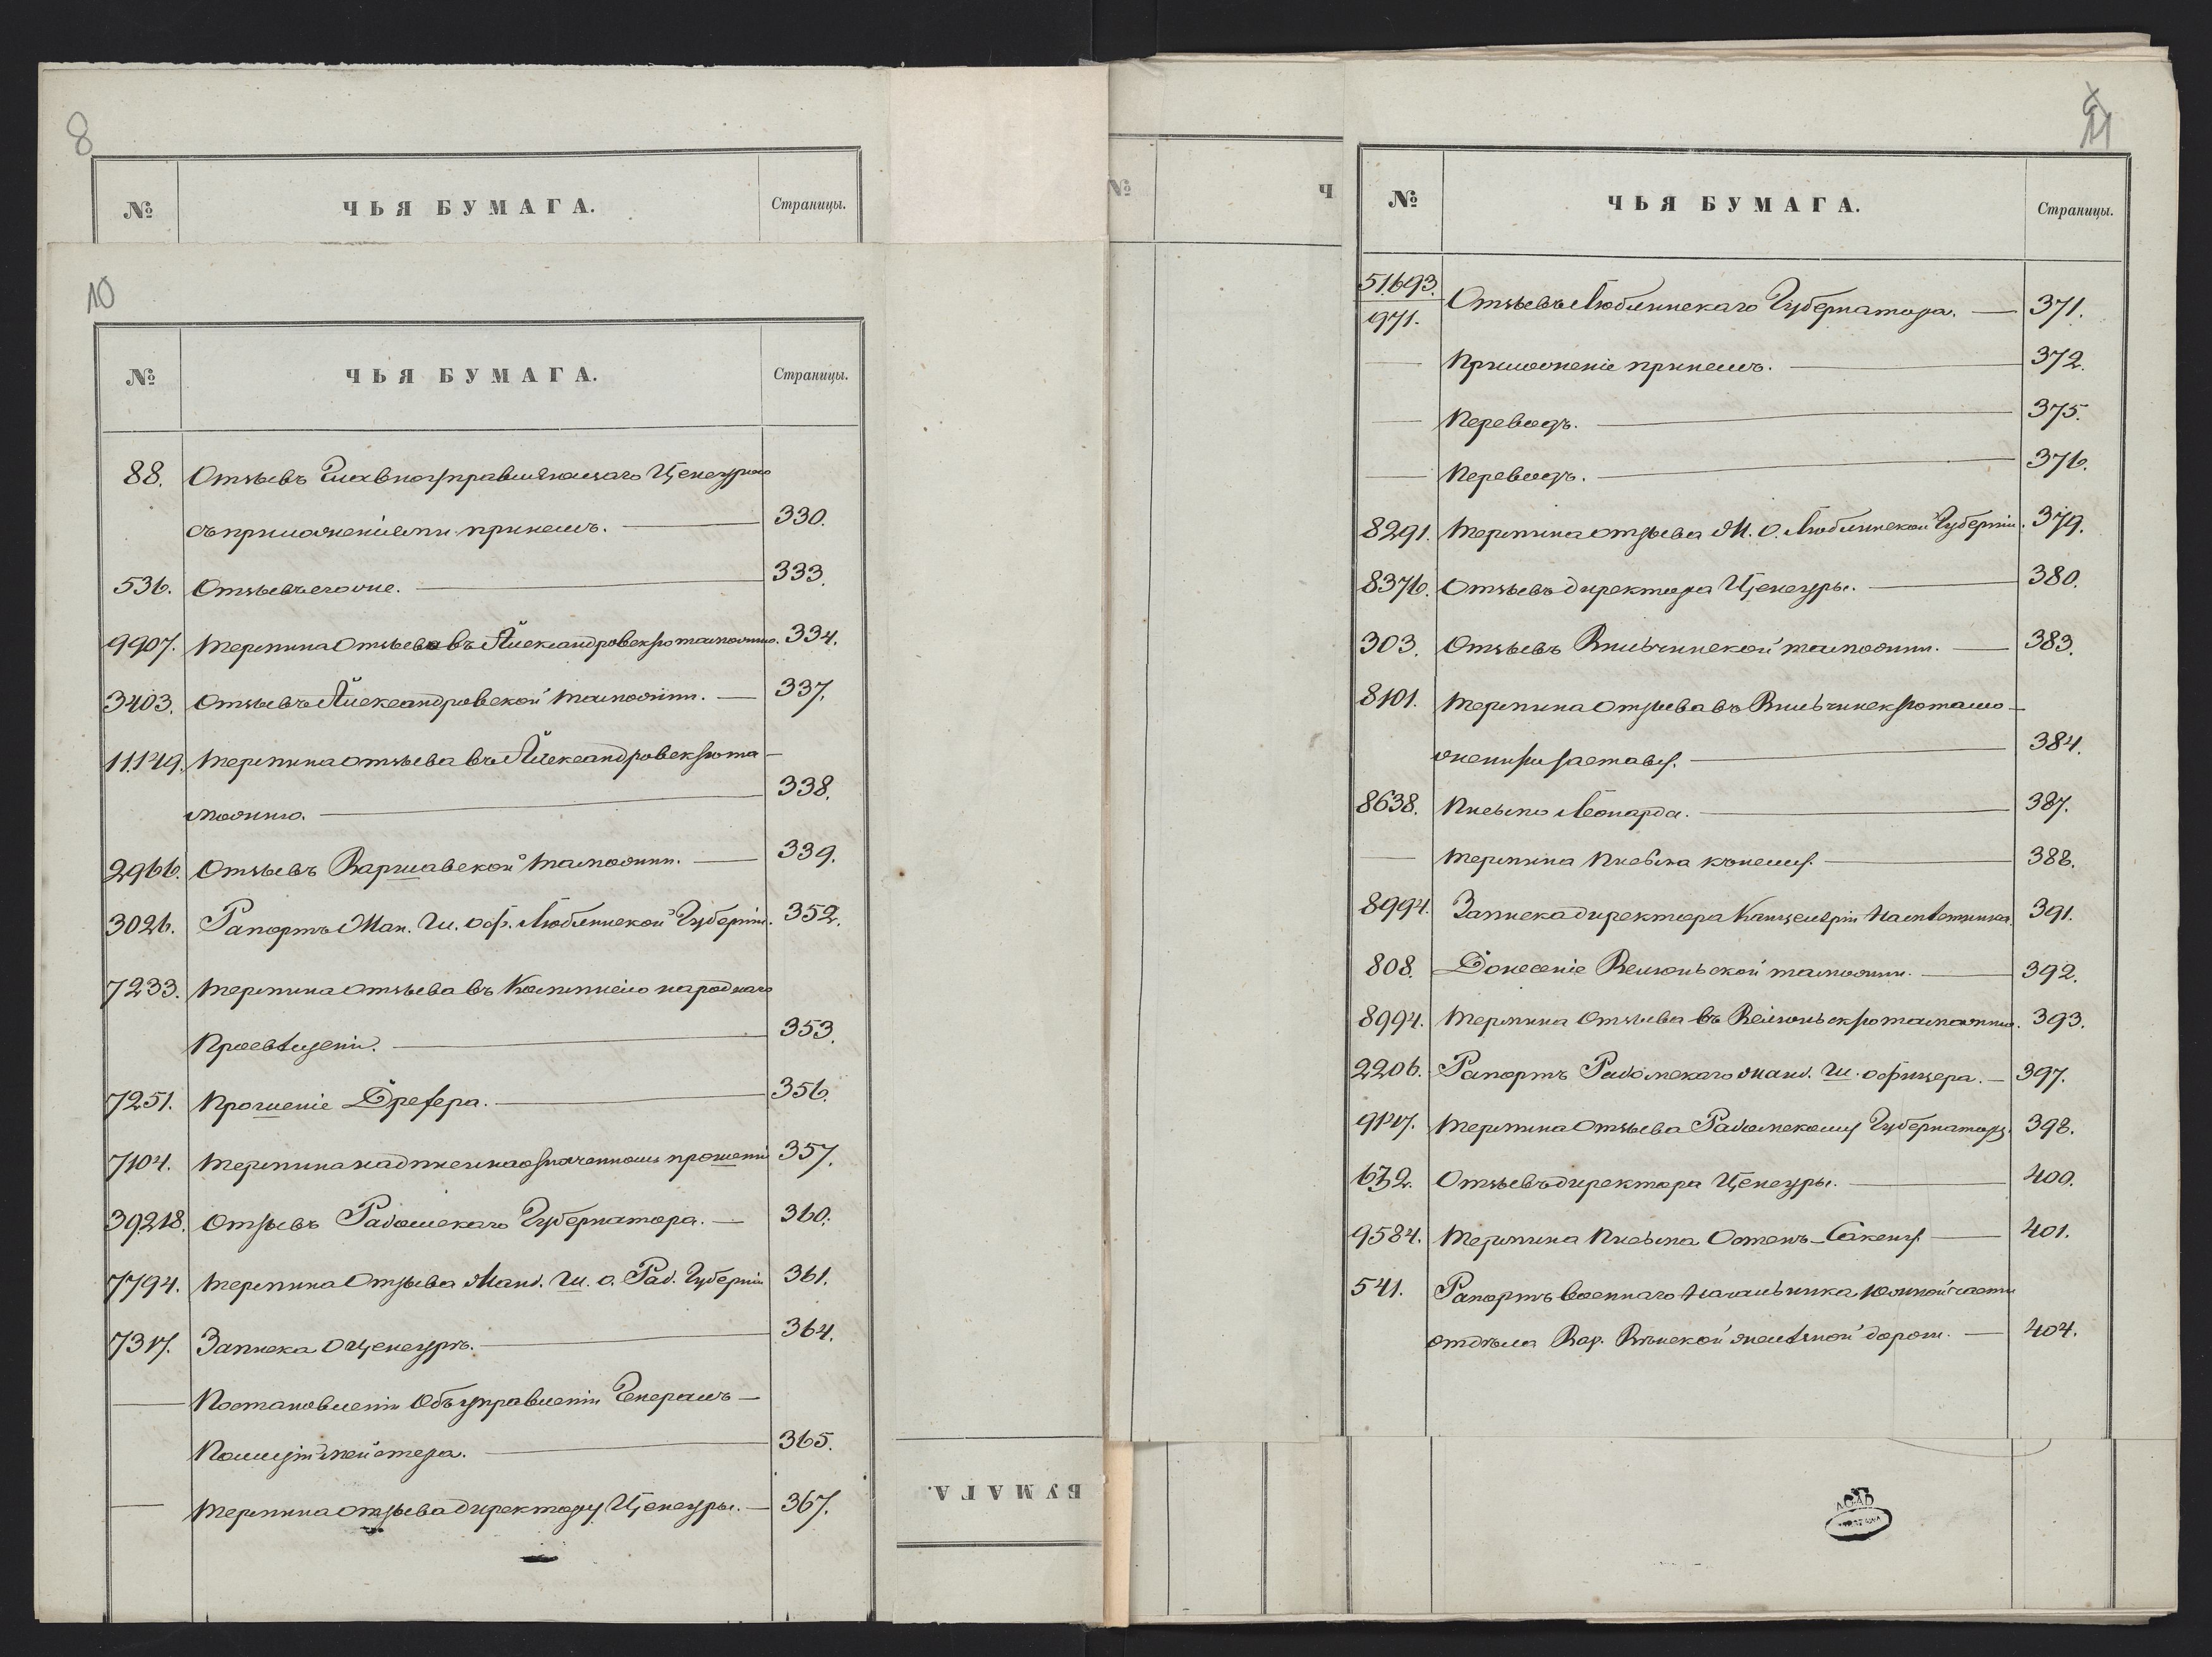 8
№ ЧЬЯ БУМАГА. Страницы.
10
№ ЧЬЯ БУМАГА. Страницы.
88. Отзывъ Главноуправляющаго Цензурою
съ приложеніями при немъ. — 330.
536. Отзывъ его же. — 333.
9907. Терминъ Отзыва въ Александровскую таможню. 334.
3403. Отзывъ Александровской Таможни. — 337.
11149. Термина отзыва въ Александровскую та-
можню. — 338.
2966. Отзывъ Варшавской Таможни. — 339.
3026. Рапортъ Жан. Ш. Оф. Люблинской Губерніи. 352.
7233. Термина отзыва въ Коммисію народнаго
Просвѣщенія. — 353.
7251. Прошеніе Дрефера. — 356.
7104. Термина надписи на означенномъ прошеніи 357.
39218. Отзывъ Радомскаго Губернатора. — 360.
7794. Термина Отзыва Жанд. Ш. О. Рад. Губерніи 361.
7317. Записка о цензурѣ. — 364.
— Постановленіи объ управленіи Генералъ-
Полиціймейстера. — 365.
— Термина отзыва директору Цензуры. — 367.
БУМАГА.
№ Ч
11
№ ЧЬЯ БУМАГА. Страницы.
51693.
971. Отзывъ Люблинскаго Губернатора. — 371.
— Приложеніе при немъ. — 372.
— Переводъ. — 375.
— Переводъ. — 376.
8291. Термина отзыва Ж. О. Люблинской Губерніи. 379.
8376. Отзывъ директора Цензуры. — 380.
303. Отзывъ Вильчинской таможни. — 383.
8101. Термина отзыва въ Вильчинскую тамо-
женную заставу. — 384.
8638. Письмо Леонарда. — 387.
— Термина письма къ нему. — 388.
8994. Записка директора Канцеляріи Намѣстника. 391.
808. Донесеніе Велюньской таможни. — 392.
8994. Термина Отзыва въ Велюньскую таможню. 393.
2206. Рапортъ Радомскаго Жанд. Ш. офицера. — 397.
9117. Термина Отзыва Радомскому Губернатору. 398.
632. Отзывъ директора Цензуры. — 400.
9584. Термина Письма Остенъ-Сакену. — 401.
541. Рапортъ военнаго Начальника южной части
отдѣла Вар. Вѣнской желѣзной дороги. — 404.
AGAD